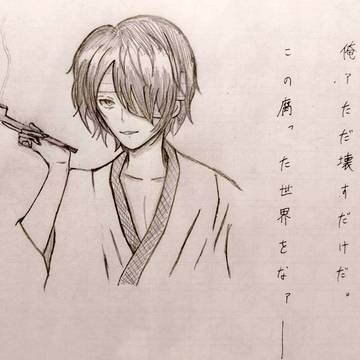 俺ァただ壊すだけだ。
この腐った世界をなァ―